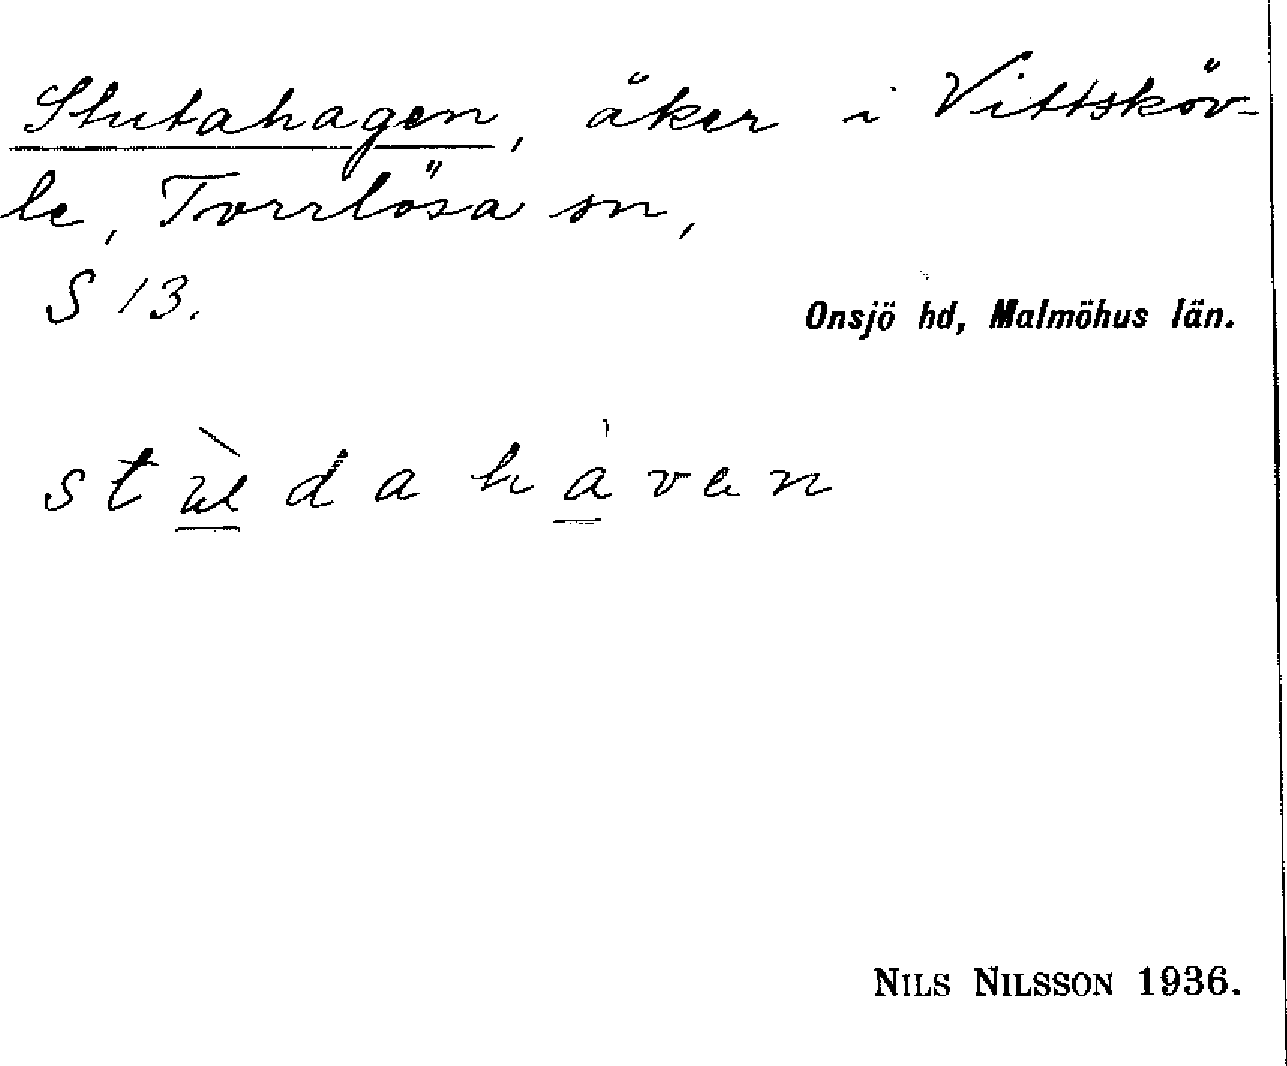 Stutahagen, åker i Vittsköv-
le, Torrlösa sn,
S 13.
Onsjö hd, Malmöhus län.
NILS NILSSON 1936.